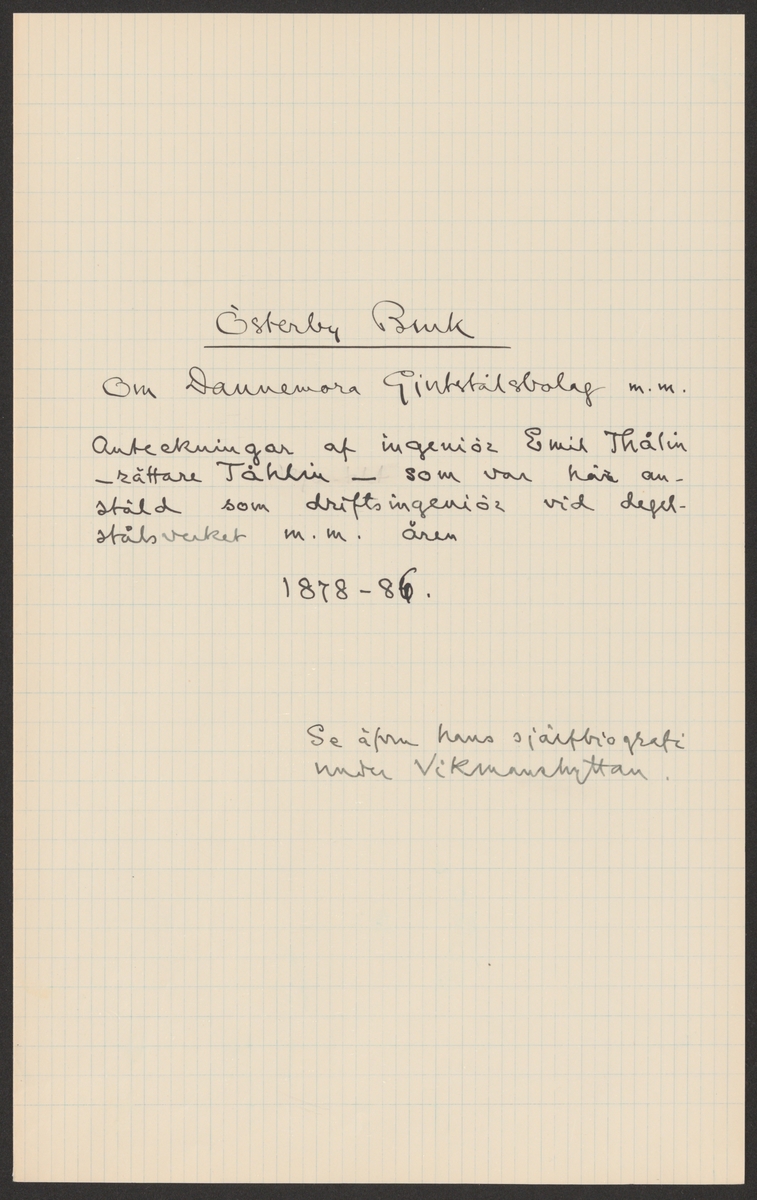 Österby Bruk
Om Dannemora Gjutstålsbolag m.m.
Anteckningar af ingeniör Emil Thålin
– rättare Tåhlin – som var här an-
stäld som driftsingeniör vid degel-
stålsverket m.m. åren
1878-86.
Se äfven hans sjärfbiografi
under Vikmanshyttan.